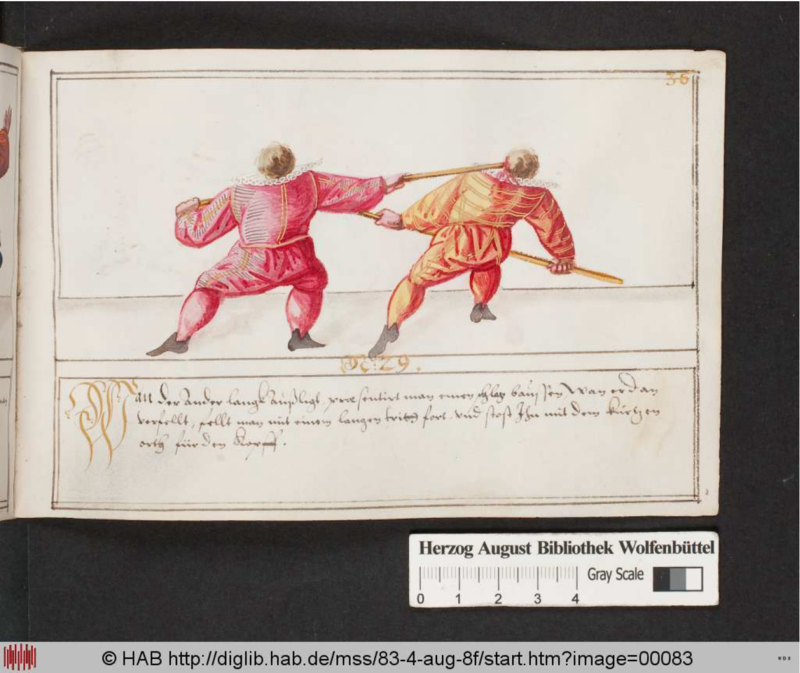 36
N: 29.
Wan der Ander langk außligt, præsentirt man einen schlag baussen Wan er dan
verfellt, fellt man mit einem langen tritt fort vnd stost Ihn mit dem kurtzen
orth für den Kopff.
Herzog August Bibliothek Wolfenbüttel
Gray Scale
0 1 2 3 4
© HAB http://diglib.hab.de/mss/83-4-aug-8f/start.htm?image=00083